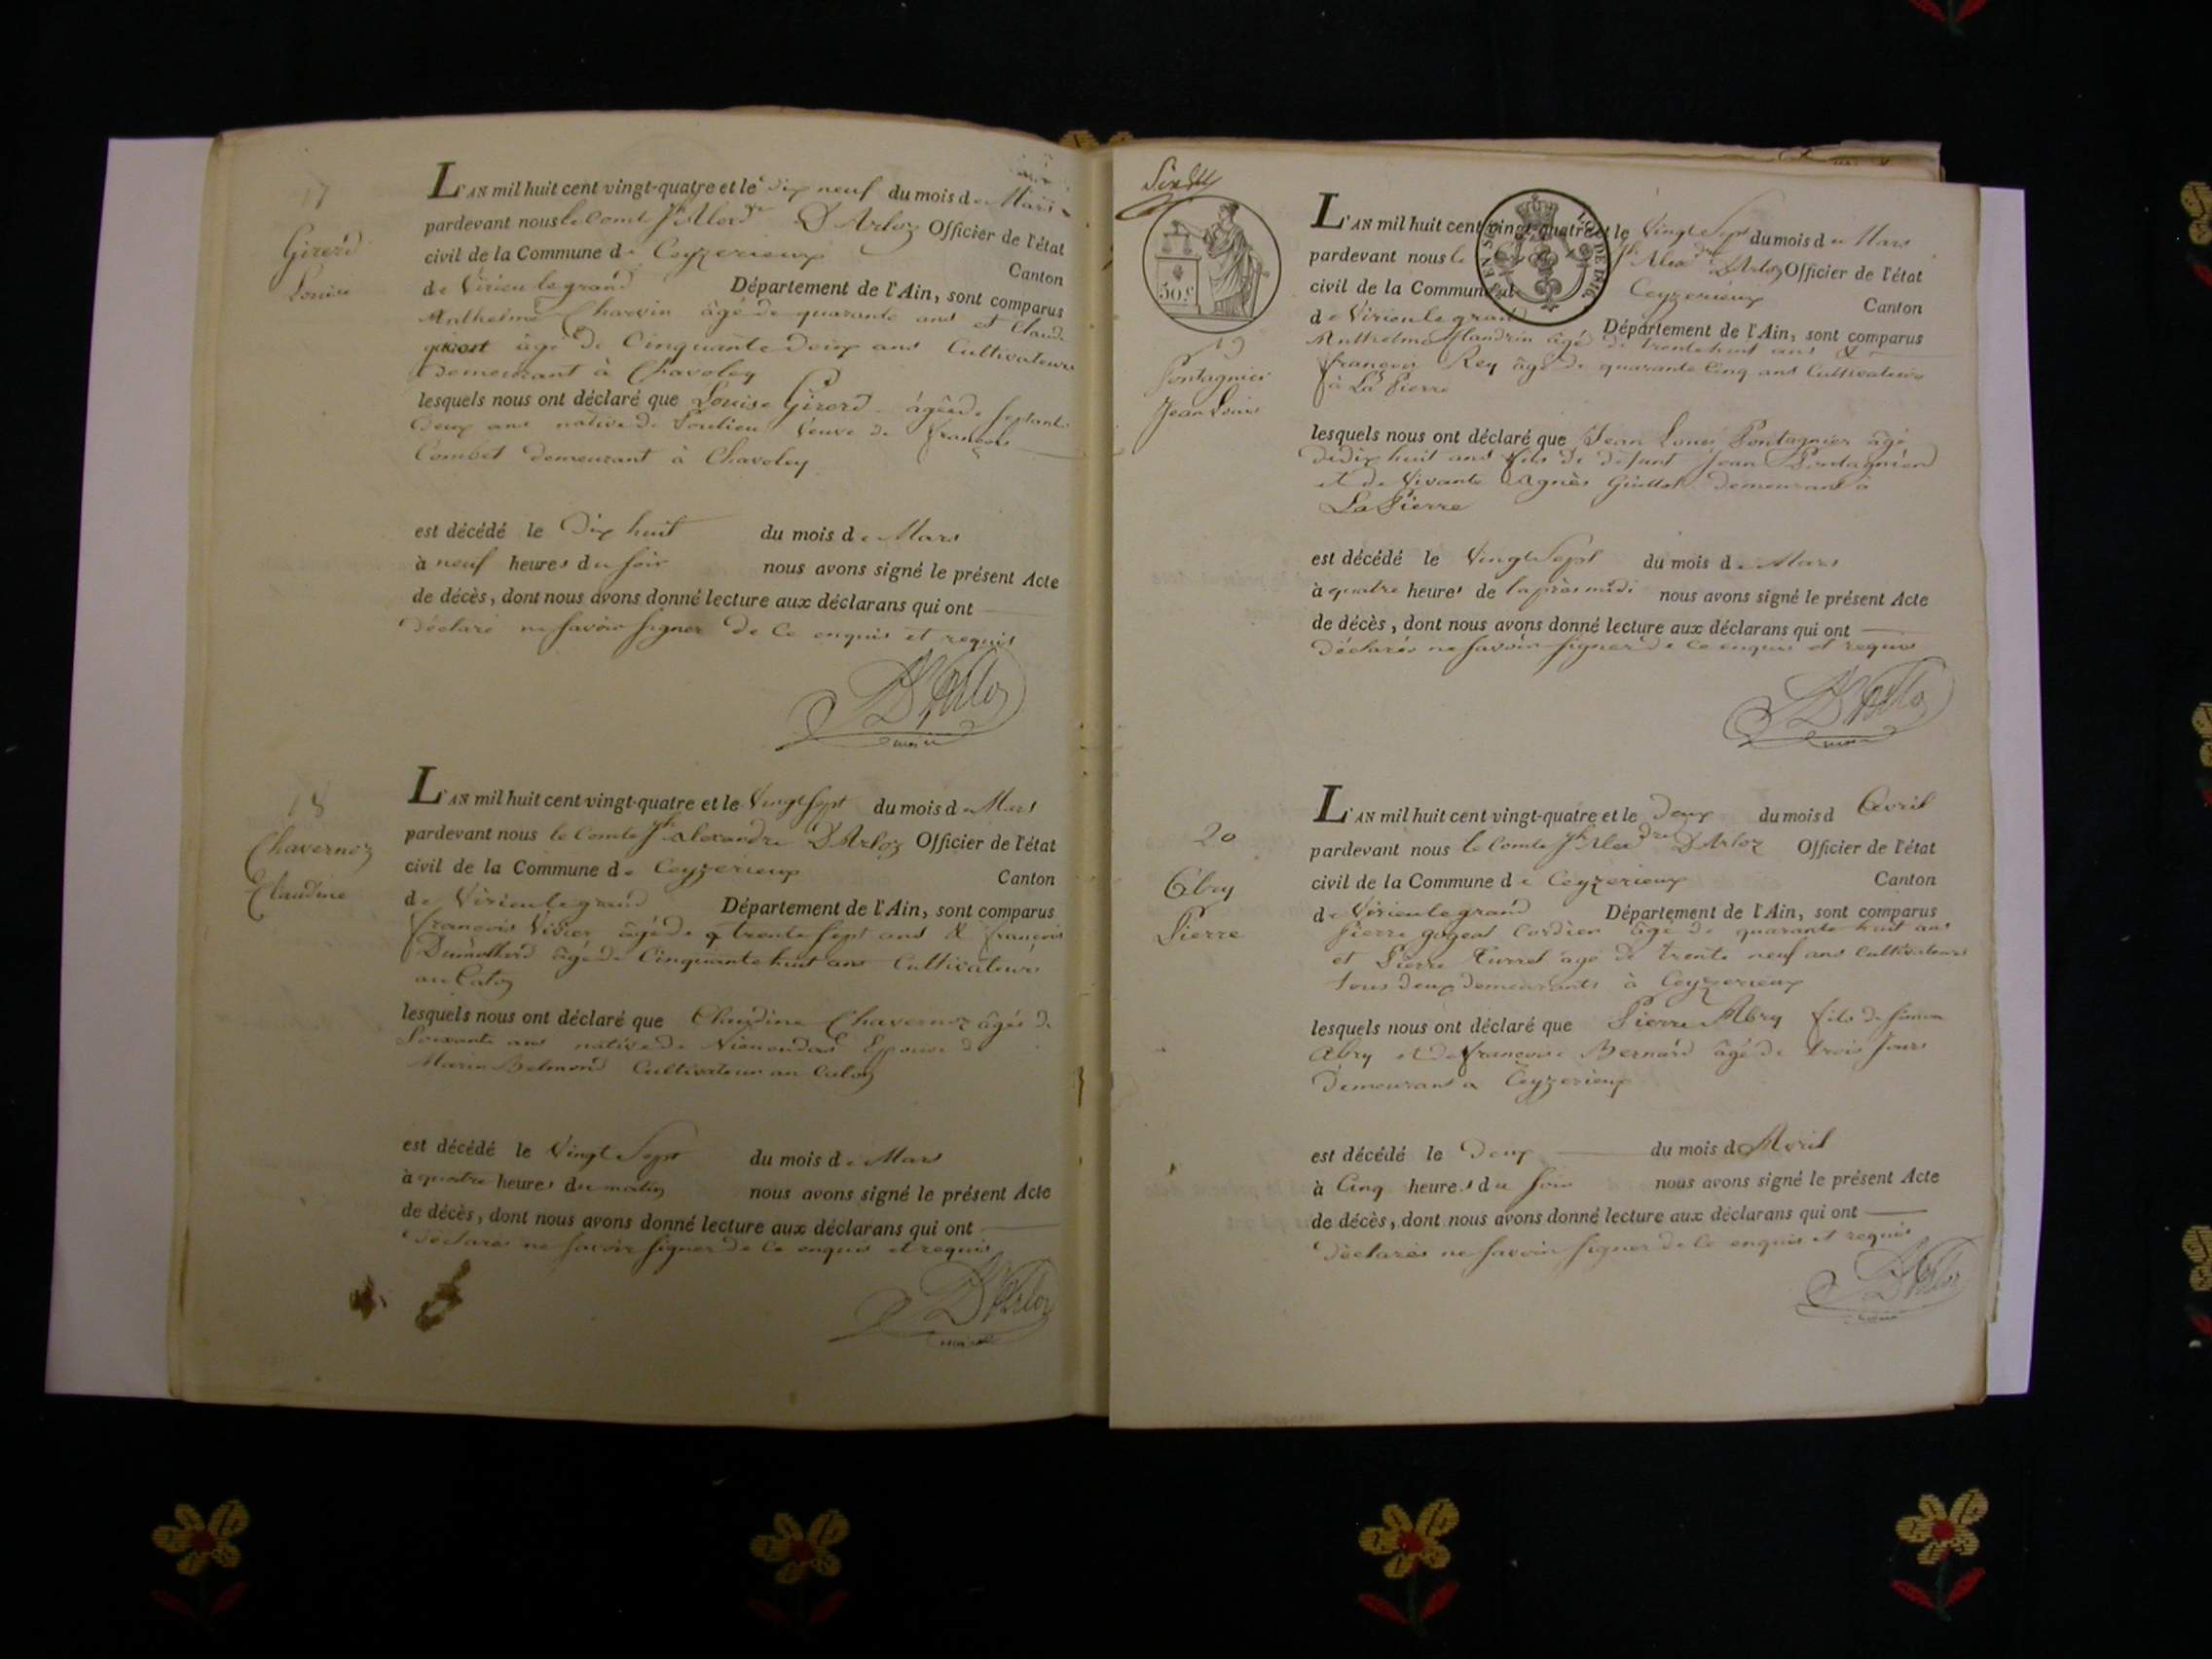 17
Girerd
Louise
L'AN mil huit cent vingt-quatre et le dix neuf du mois de Mars
pardevant nous le Comte Jh Alexdre D'Arloz Officier de l'état
civil de la Commune de Ceyzerieux
Canton
de Virieulegrand Département de l'Ain, sont comparus
Anthelme Charvin âgé de quarante ans et Claude
âgé de Cinquante deux ans Cultivateurs
demeurant à Chavoley
lesquels nous ont déclaré que Louise Girerd âgée de septante
deux ans native de veuve de françois
Combet demeurant à Chavoley
est décédé le Dix huit du mois de Mars
à neuf heures du soir nous avons signé le présent Acte
de décès, dont nous avons donné lecture aux déclarans qui ont
déclaré ne savoir signer de ce enquis et requis
D'Arloz
maire
18
Chavernoz
Claudine
L'AN mil huit cent vingt-quatre et le Vingt sept du mois de Mars
pardevant nous le Comte Jh Alexandre D'Arloz Officier de l'état
civil de la Commune de Ceyzerieux
Canton
de Virieulegrand Département de l'Ain, sont comparus
françois Vivier âgé de trente sept ans & françois
Dumollard âgé de Cinquante huit ans Cultivateurs
au Caton
lesquels nous ont déclaré que Claudine Chavernoz âgée de
Soixante ans native de Epouse de
Marin Belmond Cultivateur au Caton
est décédé le Vingt Sept du mois de Mars
à quatre heures du matin nous avons signé le présent Acte
de décès, dont nous avons donné lecture aux déclarans qui ont
déclarés ne savoir signer de ce enquis et requis
D'Arloz
maire
50 c
19
Pontagnier
Jean Louis
L'AN mil huit cent vingt-quatre et le Vingt Sept du mois de Mars
pardevant nous le Jh Alexdre D'Arloz Officier de l'état
civil de la Commune de Ceyzerieux Canton
de Virieulegrand Département de l'Ain, sont comparus
Anthelme Flandrin âgé de trente huit ans &
françois Rey âgé de quarante Cinq ans Cultivateurs
à La Pierre
lesquels nous ont déclaré que Jean Louis Pontagnier âgé
de dix huit ans fils de défunt Jean Pontagnier
et de Vivante Agnès Guillot demeurant à
La Pierre
est décédé le Vingt Sept du mois de Mars
à quatre heures de laprès midi nous avons signé le présent Acte
de décès, dont nous avons donné lecture aux déclarans qui ont
déclarés ne savoir signer de ce enquis et requis
D'Arloz
maire
20
Abry
Pierre
L'AN mil huit cent vingt-quatre et le Deux du mois d Avril
pardevant nous le Comte Jh Alexdre D'Arloz Officier de l'état
civil de la Commune de Ceyzerieux Canton
de Virieulegrand Département de l'Ain, sont comparus
Pierre Cordier âgé de quarante huit ans
et Pierre Turrel âgé de trente neuf ans Cultivateurs
tous deux demeurants à Ceyzerieux
lesquels nous ont déclaré que Pierre Abry fils de simon
Abry et de françoise Bernard âgé de trois jours
demeurant a Ceyzerieux
est décédé le Deux du mois d Avril
à Cinq heures du soir nous avons signé le présent Acte
de décès, dont nous avons donné lecture aux déclarans qui ont
déclarés ne savoir signer de ce enquis et requis
D'Arloz
maire